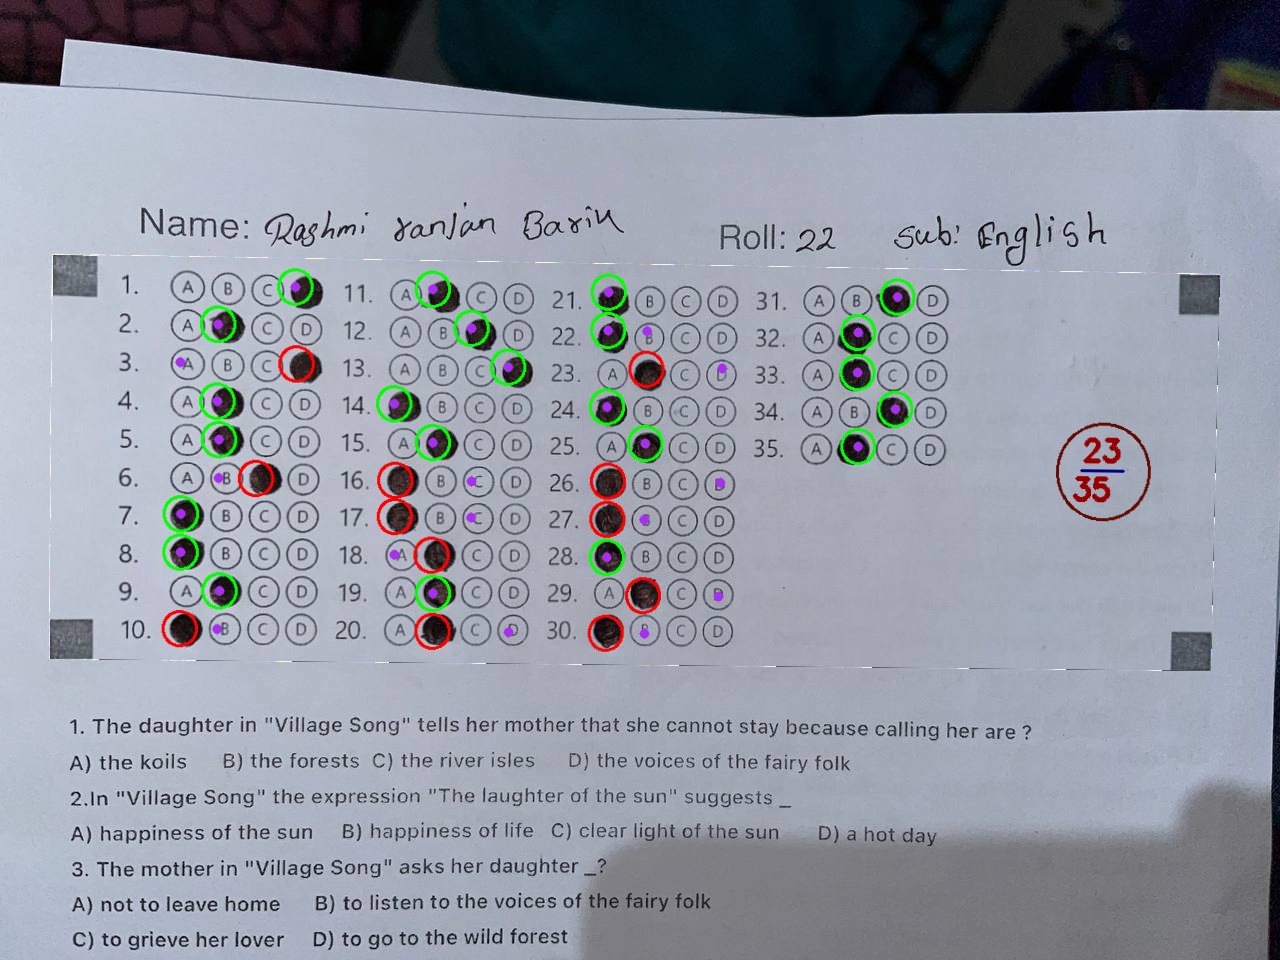 Name: Rashmi ranjan Barik Roll: 22 Sub: English
1. A B C 11. A C D 21. B C D 31. A B D
2. A C D 12. A B D 22. B C D 32. A C D
3. A B C 13. A B C 23. A C D 33. A C D
4. A C D 14. B C D 24. B C D 34. A B D
5. A C D 15. A C D 25. A C D 35. A C D
6. A B D 16. B C D 26. B C D
7. B C D 17. B C D 27. B C D
8. B C D 18. A C D 28. B C D
9. A C D 19. A C D 29. A C D
10. B C D 20. A C D 30. B C D
23
35
1. The daughter in "Village Song" tells her mother that she cannot stay because calling her are ?
A) the koils B) the forests C) the river isles D) the voices of the fairy folk
2.In "Village Song" the expression "The laughter of the sun" suggests _
A) happiness of the sun B) happiness of life C) clear light of the sun D) a hot day
3. The mother in "Village Song" asks her daughter _?
A) not to leave home B) to listen to the voices of the fairy folk
C) to grieve her lover D) to go to the wild forest